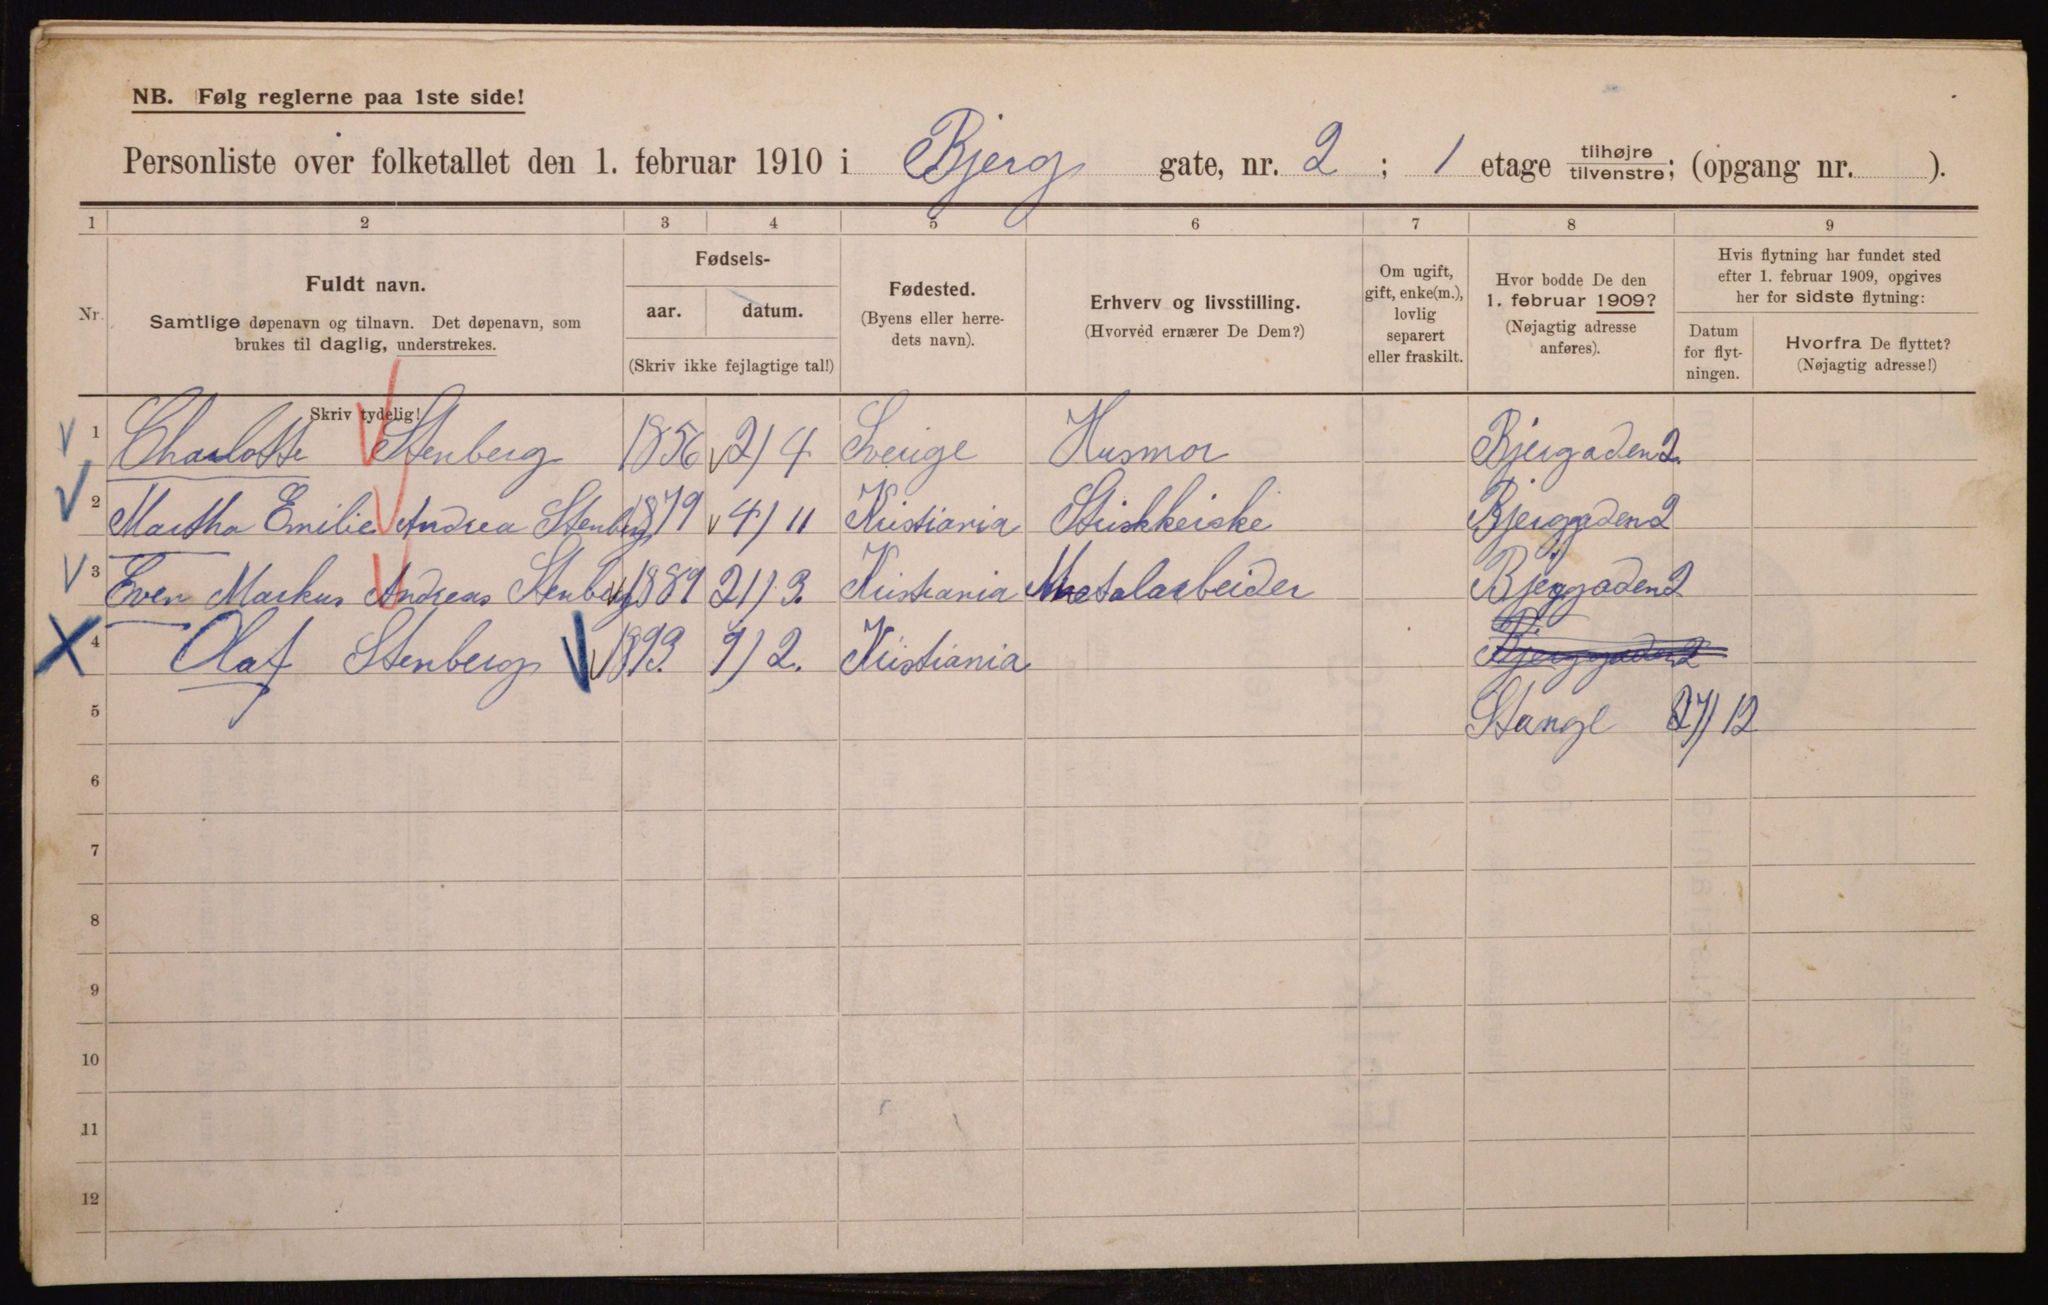 NB. Følg reglerne paa 1ste side!
Personliste over folketallet den 1. februar 1910 i Bjerg gate, nr. 2; 1 etage tilhøjre tilvenstre; (opgang nr. ).
1 2 3 4 5 6 7 8 9
Nr.
Fuldt navn.
Samtlige døpenavn og tilnavn. Det døpenavn, som
brukes til daglig, understrekes.
Fødsels-
aar. datum.
(Skriv ikke fejlagtige tal!)
Fødested.
(Byens eller herre-
dets navn).
Erhverv og livsstilling.
(Hvorved ernærer De Dem?)
Om ugift,
gift, enke(m.),
lovlig
separert
eller fraskilt.
Hvor bodde De den
1. februar 1909?
(Nøjagtig adresse
anføres).
Hvis flytning har fundet sted
efter 1. februar 1909, opgives
her for sidste flytning:
Datum
for flyt-
ningen.
Hvorfra De flyttet?
(Nøjagtig adresse!)
Skriv tydelig!
1 Charlotte Stenberg 1856 2/4 Sverige Husmor Bjergaden 2.
2 Martha Emilie Andrea Stenberg 1879 4/11 Kristiania Bjerggaden 2
3 Even Markus Andreas Stenberg 1889 21/3. Kristiania Metalarbeider Bjerggaden 2
4 Olaf Stenberg 1893. 9/2. Kristiania Bjerggaden 2
5 Stange 27/12
6
7
8
9
10
11
12